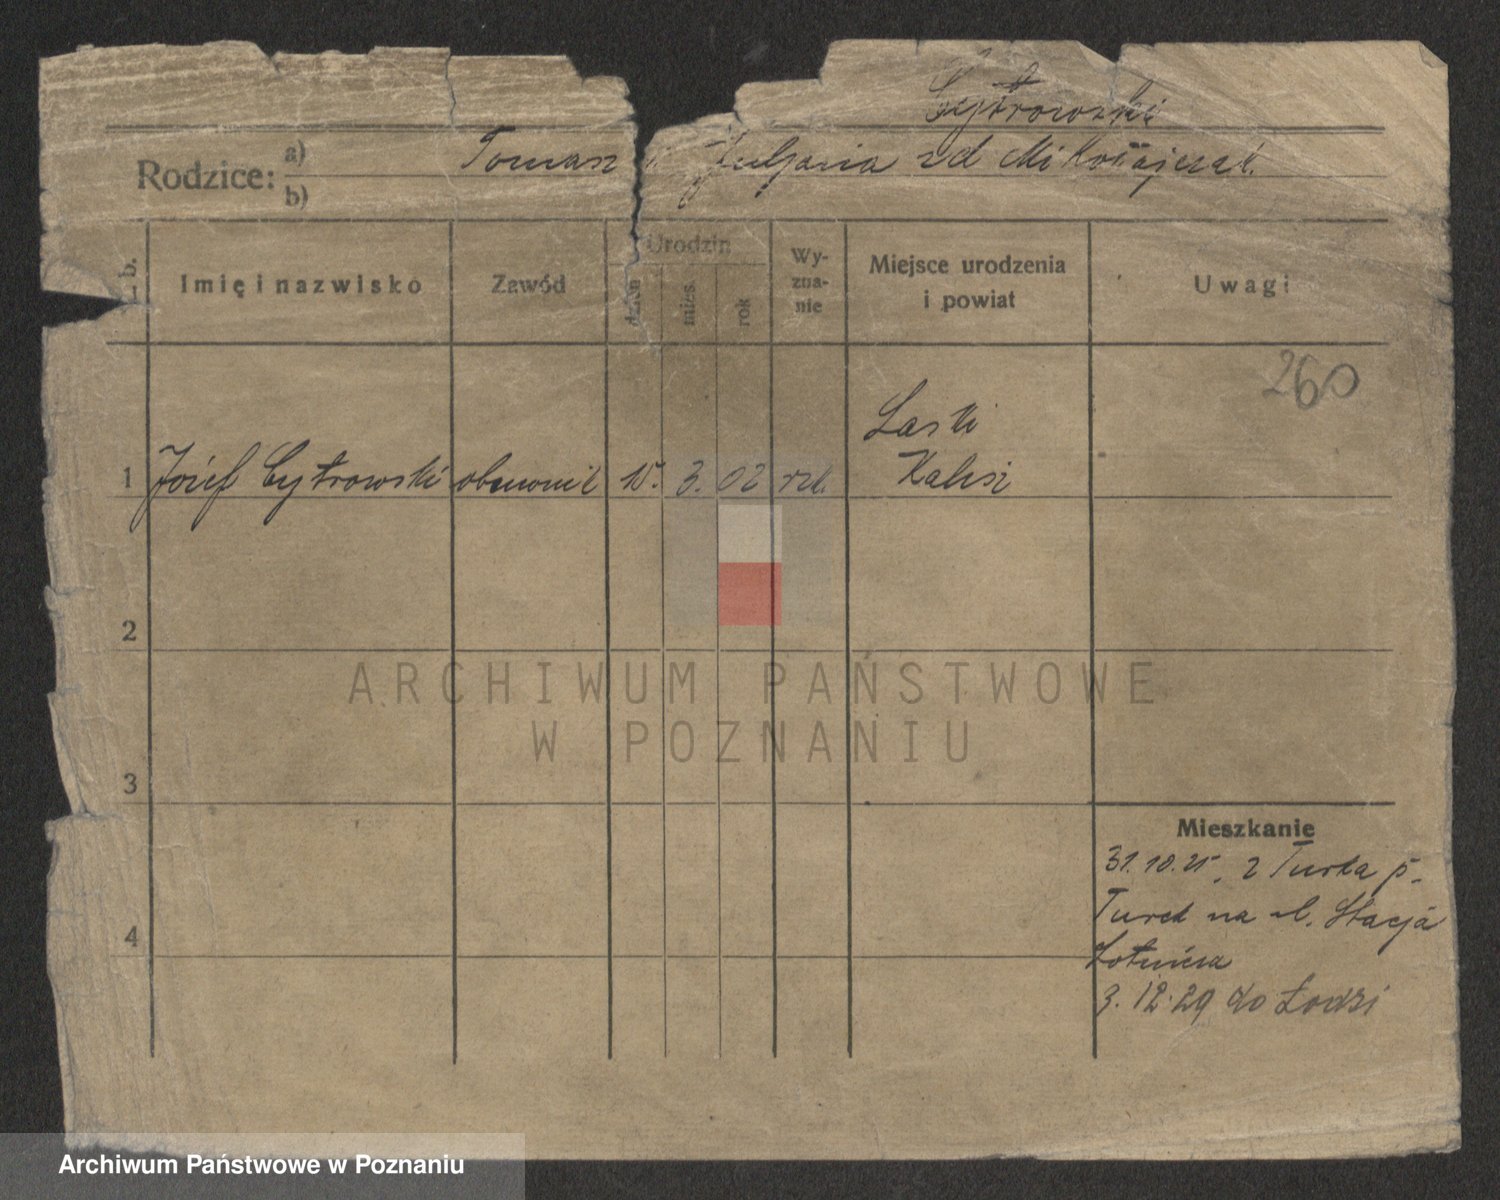 Cytrowski
Rodzice: a) b)
Tomasz i Julianna zd Mikołajczak.
b.
Imię i nazwisko
Zawód
Urodzin
dzień
mies.
rok
Wy-
zna-
nie
Miejsce urodzenia
i powiat
Uwagi
260
1 Józef Cytrowski 15. 3. 02 rzk. Laski
Kalisz
2
3
4
Mieszkanie
31.10.25. z Turka p.
Turek na ul. Stacja
3.12.29 do Łodzi
ARCHIWUM PAŃSTWOWE
W POZNANIU
Archiwum Państwowe w Poznaniu